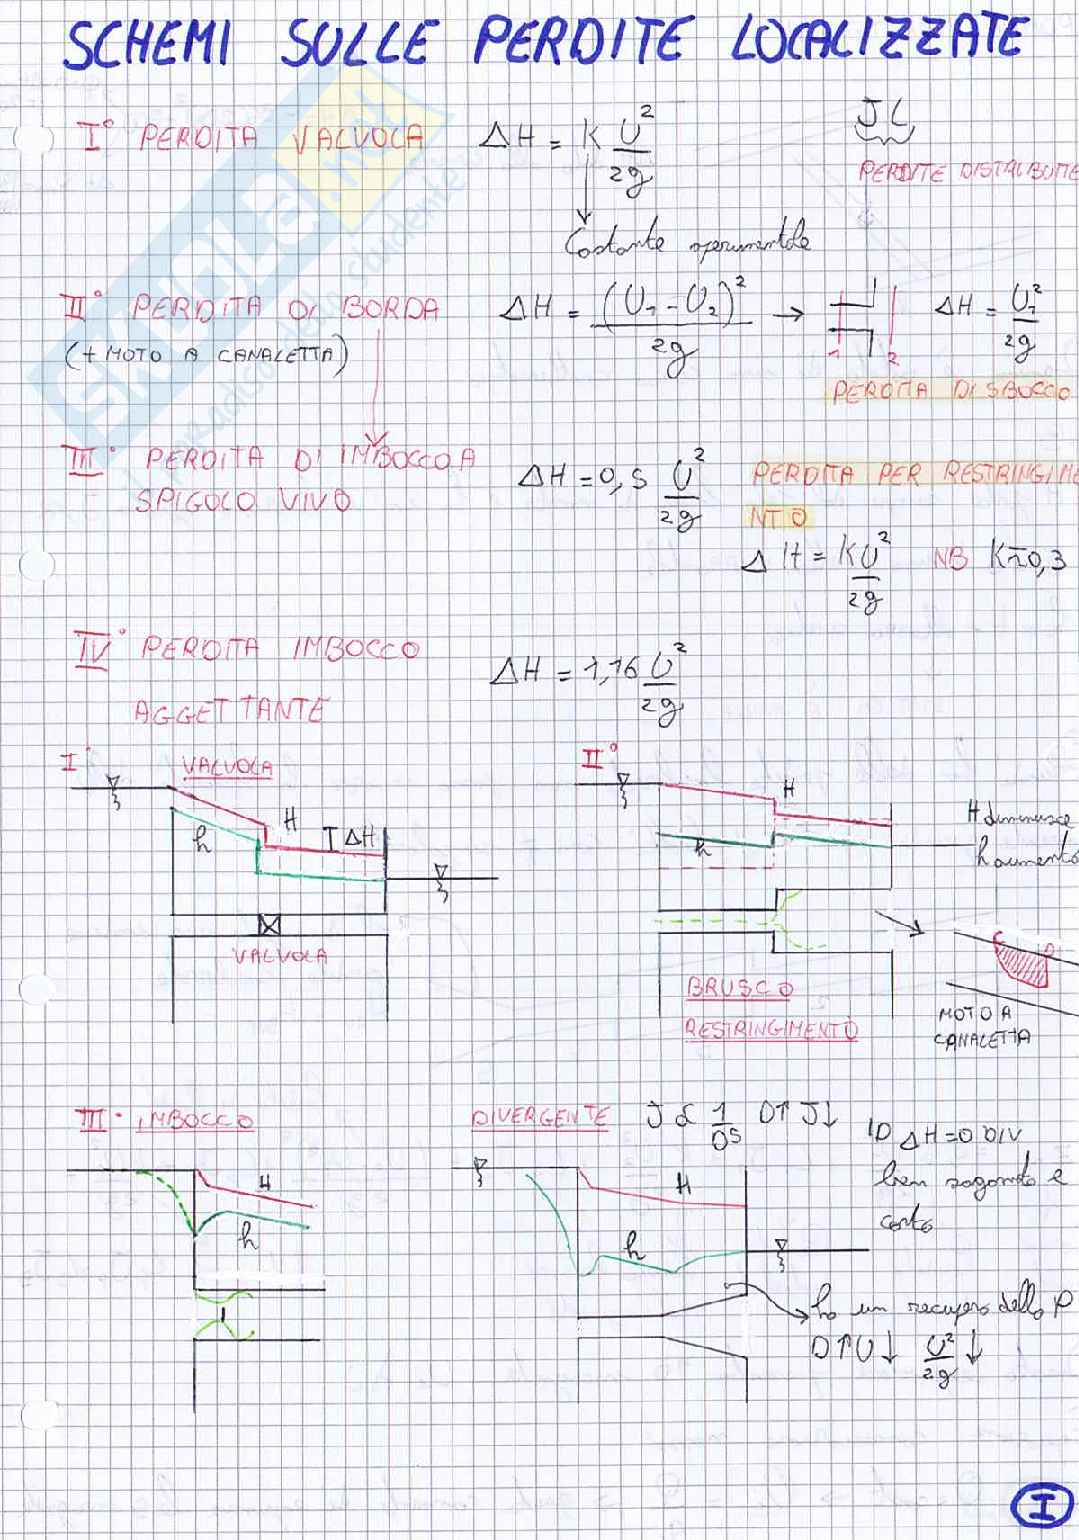 SCHEMI SULLE PERDITE LOCALIZZATE
I° PERDITA VALVOLA ΔH = K U²/2g
JL
PERDITE DISTRIBUITE
Costante sperimentale
II° PERDITA DI BORDA ΔH = (U₁-U₂)²/2g → 1 2 ΔH = U₁²/2g
(+ MOTO A CANALETTA)
PERDITA DI SBOCCO
III° PERDITA DI IMBOCCO A
SPIGOLO VIVO
ΔH = 0,5 U²/2g
PERDITA PER RESTRINGIME
NTO
ΔH = KU²/2g NB K≈0,3
IV° PERDITA IMBOCCO
AGGETTANTE
ΔH = 1,16 U²/2g
I° VALVOLA
h H ΔH
VALVOLA
II°
H
h
H diminuisce
h aumenta
BRUSCO
RESTRINGIMENTO
MOTO A
CANALETTA
III° IMBOCCO
H
h
DIVERGENTE J ∝ 1/D⁵ D↑ J↓
ΔH=0 DIV
ben sagomato e
corto
H
h
ho un recupero della p
D↑U↓ U²/2g ↓
I
SKUOLA.net